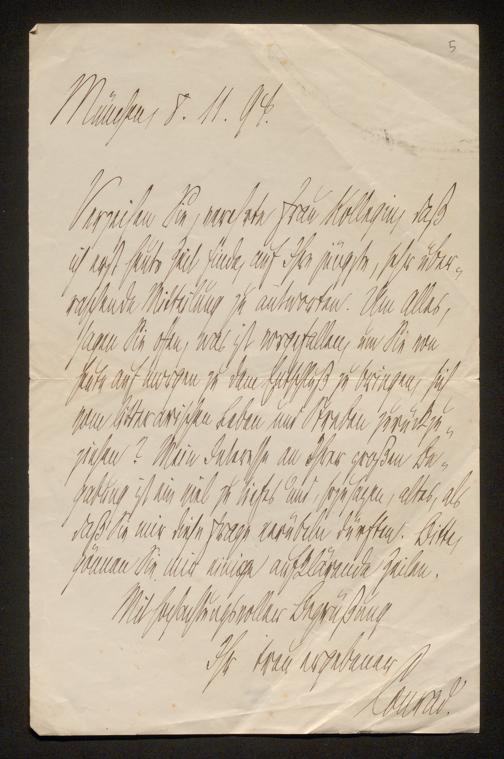 5
München, 8. 11. 94.
Verzeihen Sie, verehrte Frau Kollegin, daß
ich erst heute Zeit finde, auf Ihre jüngste, sehr über-
raschende Mitteilung zu antworten. Um alles,
sagen Sie offen, was ist vorgefallen, um Sie von
heute auf morgen zu dem Entschluß zu bringen, sich
vom litterarischen Leben und Streben zurückzu-
ziehen? Mein Interesse an Ihrer großen Be-
gabung ist ein viel zu tiefes und, sozusagen, altes, als
daß Sie mir diese Frage verübeln dürften. Bitte,
gönnen Sie mir einige aufklärende Zeilen.
Mit hochachtungsvoller Begrüßung
Ihr treu ergebener
Conrad.